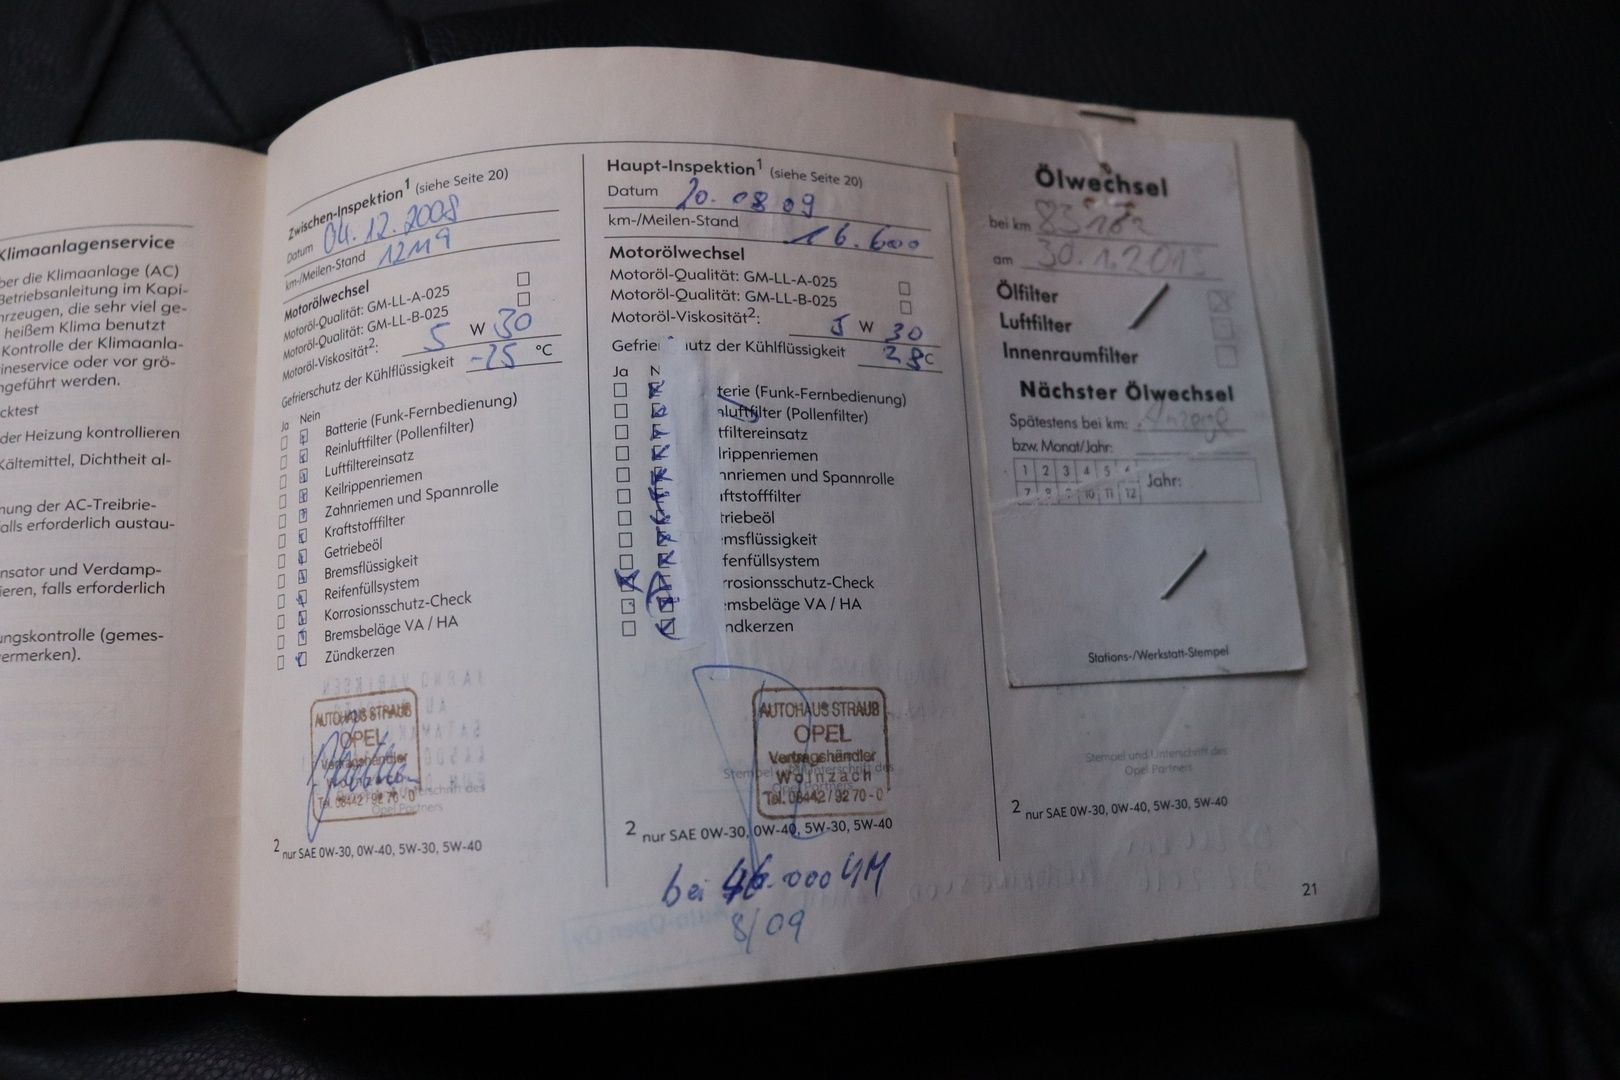 Klimaanlagenservice
ber die Klimaanlage (AC)
Betriebsanleitung im Kapi-
hrzeugen, die sehr viel ge-
heißem Klima benutzt
Kontrolle der Klimaanla-
ineservice oder vor grö-
ngeführt werden.
cktest
der Heizung kontrollieren
Kältemittel, Dichtheit al-
nung der AC-Treibrie-
alls erforderlich austau-
nsator und Verdamp-
ieren, falls erforderlich
ungskontrolle (gemes-
vermerken).
Zwischen-Inspektion1 (siehe Seite 20)
Datum 04.12.2008
km-/Meilen-Stand 12119
Motorölwechsel
Motoröl-Qualität: GM-LL-A-025
Motoröl-Qualität: GM-LL-B-025
Motoröl-Viskosität2: 5 W 30
Gefrierschutz der Kühlflüssigkeit -25 °C
Ja Nein
Batterie (Funk-Fernbedienung)
Reinluftfilter (Pollenfilter)
Luftfiltereinsatz
Keilrippenriemen
Zahnriemen und Spannrolle
Kraftstofffilter
Getriebeöl
Bremsflüssigkeit
Reifenfüllsystem
Korrosionsschutz-Check
Bremsbeläge VA / HA
Zündkerzen
AUTOHAUS STRAUB
OPEL
Vertragshändler
Wolnzach
Tel. 08442 / 92 70 - 0
2 nur SAE 0W-30, 0W-40, 5W-30, 5W-40
Haupt-Inspektion1 (siehe Seite 20)
Datum 20.08.09
km-/Meilen-Stand 16.600
Motorölwechsel
Motoröl-Qualität: GM-LL-A-025
Motoröl-Qualität: GM-LL-B-025
Motoröl-Viskosität2: 5 W 30
Gefrie utz der Kühlflüssigkeit 28 °C
Ja N
terie (Funk-Fernbedienung)
nluftfilter (Pollenfilter)
tfiltereinsatz
lrippenriemen
nnriemen und Spannrolle
aftstofffilter
triebeöl
emsflüssigkeit
fenfüllsystem
rrosionsschutz-Check
emsbeläge VA / HA
ndkerzen
AUTOHAUS STRAUB
OPEL
Vertragshändler
Wolnzach
Tel. 08442 / 92 70 - 0
2 nur SAE 0W-30, 0W-40, 5W-30, 5W-40
bei 46.000 KM
8/09
Ölwechsel
bei km 83182
am 30.1.2013
Ölfilter
Luftfilter
Innenraumfilter
Nächster Ölwechsel
Spätestens bei km: Anzeige
bzw. Monat/Jahr:
1 2 3 4 5 6 Jahr:
7 8 9 10 11 12
Stations-/Werkstatt-Stempel
Stempel und Unterschrift des
Opel Partners
2 nur SAE 0W-30, 0W-40, 5W-30, 5W-40
21